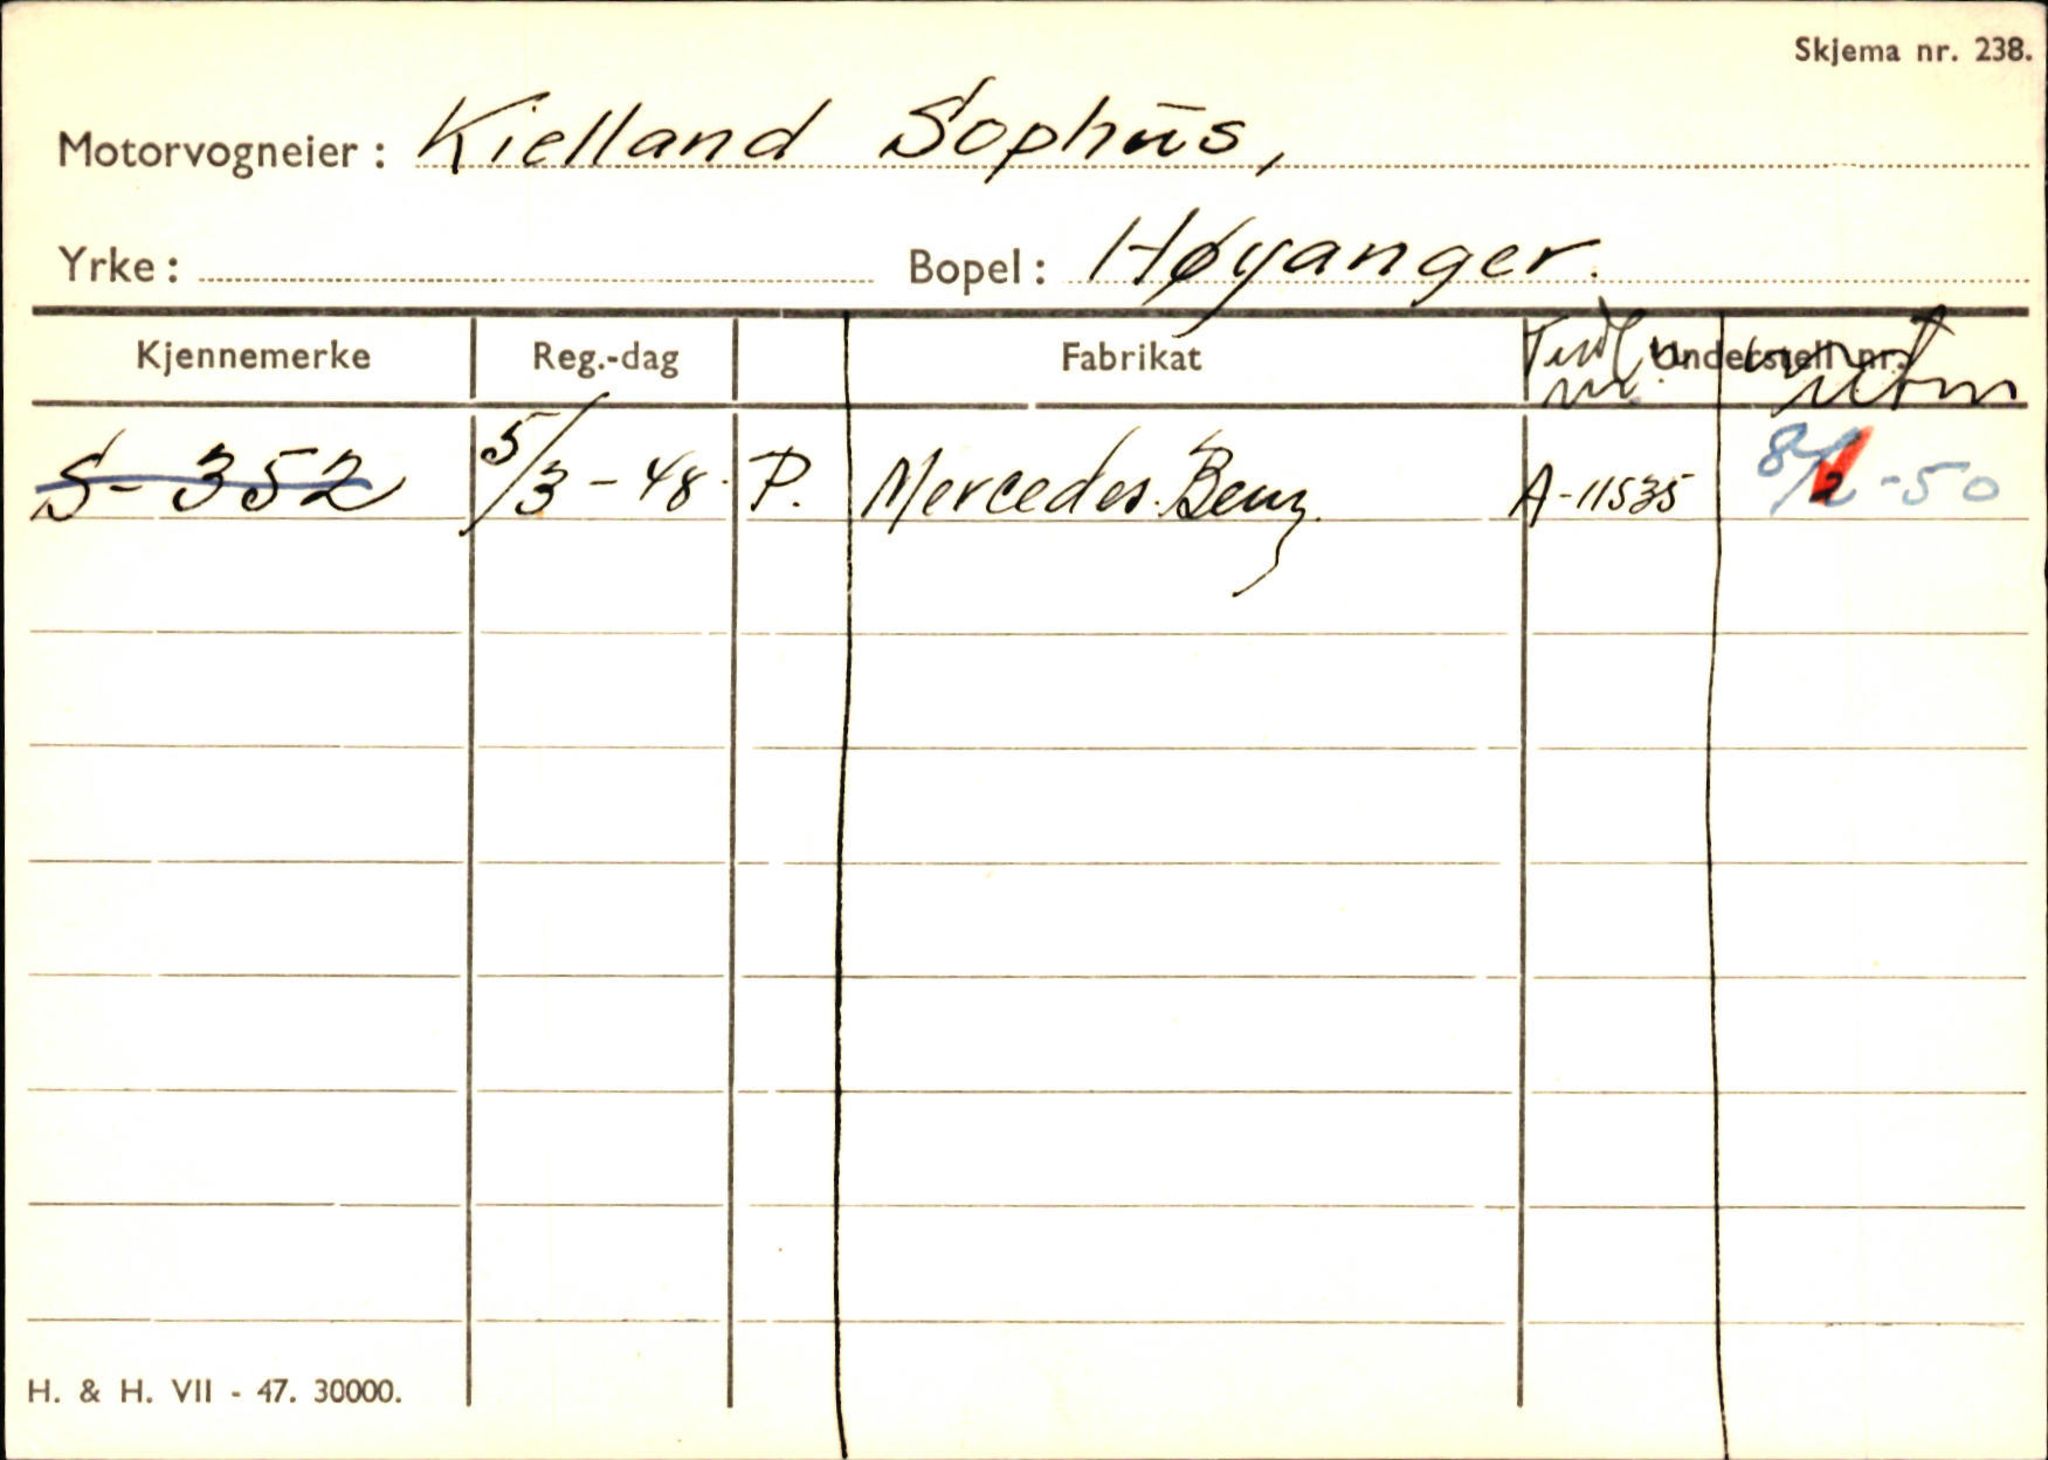 Skjema nr. 238.
Motorvogneier: Kielland Sophus,
Yrke: Bopel: Høyanger.
Kjennemerke Reg.-dag Fabrikat Understell nr.
S-352 5/3-48. P. Mercedes-Benz A-11535 8/2-50
H. & H. VII - 47. 30000.